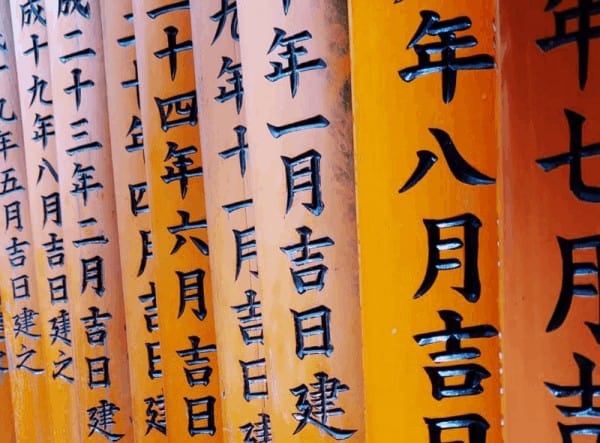 年七月吉
年八月吉日
年一月吉日建
九年十一月吉日建
二十四年六月吉日
年四月吉日建
成二十三年二月吉日建
成十九年八月吉日建之
九年五月吉日建之